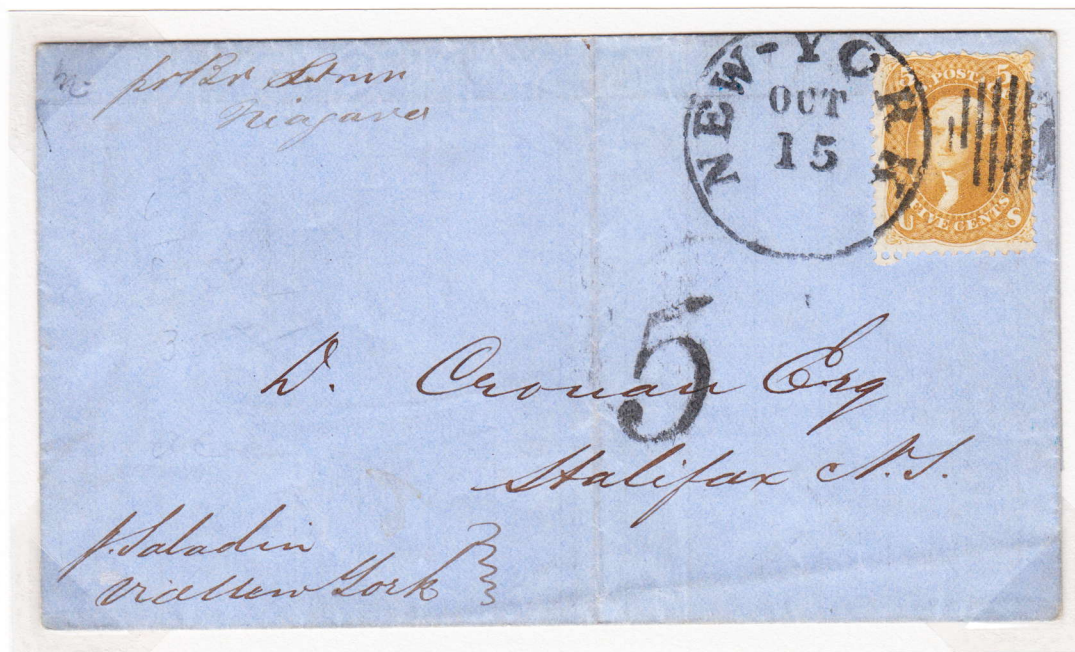 pr Br Stmr
Niagara
NEW-YORK
OCT
15
5 POST 5
U FIVE CENTS S
5
D. Cronan Esq
Halifax N.S.
p. Saladin
via New York